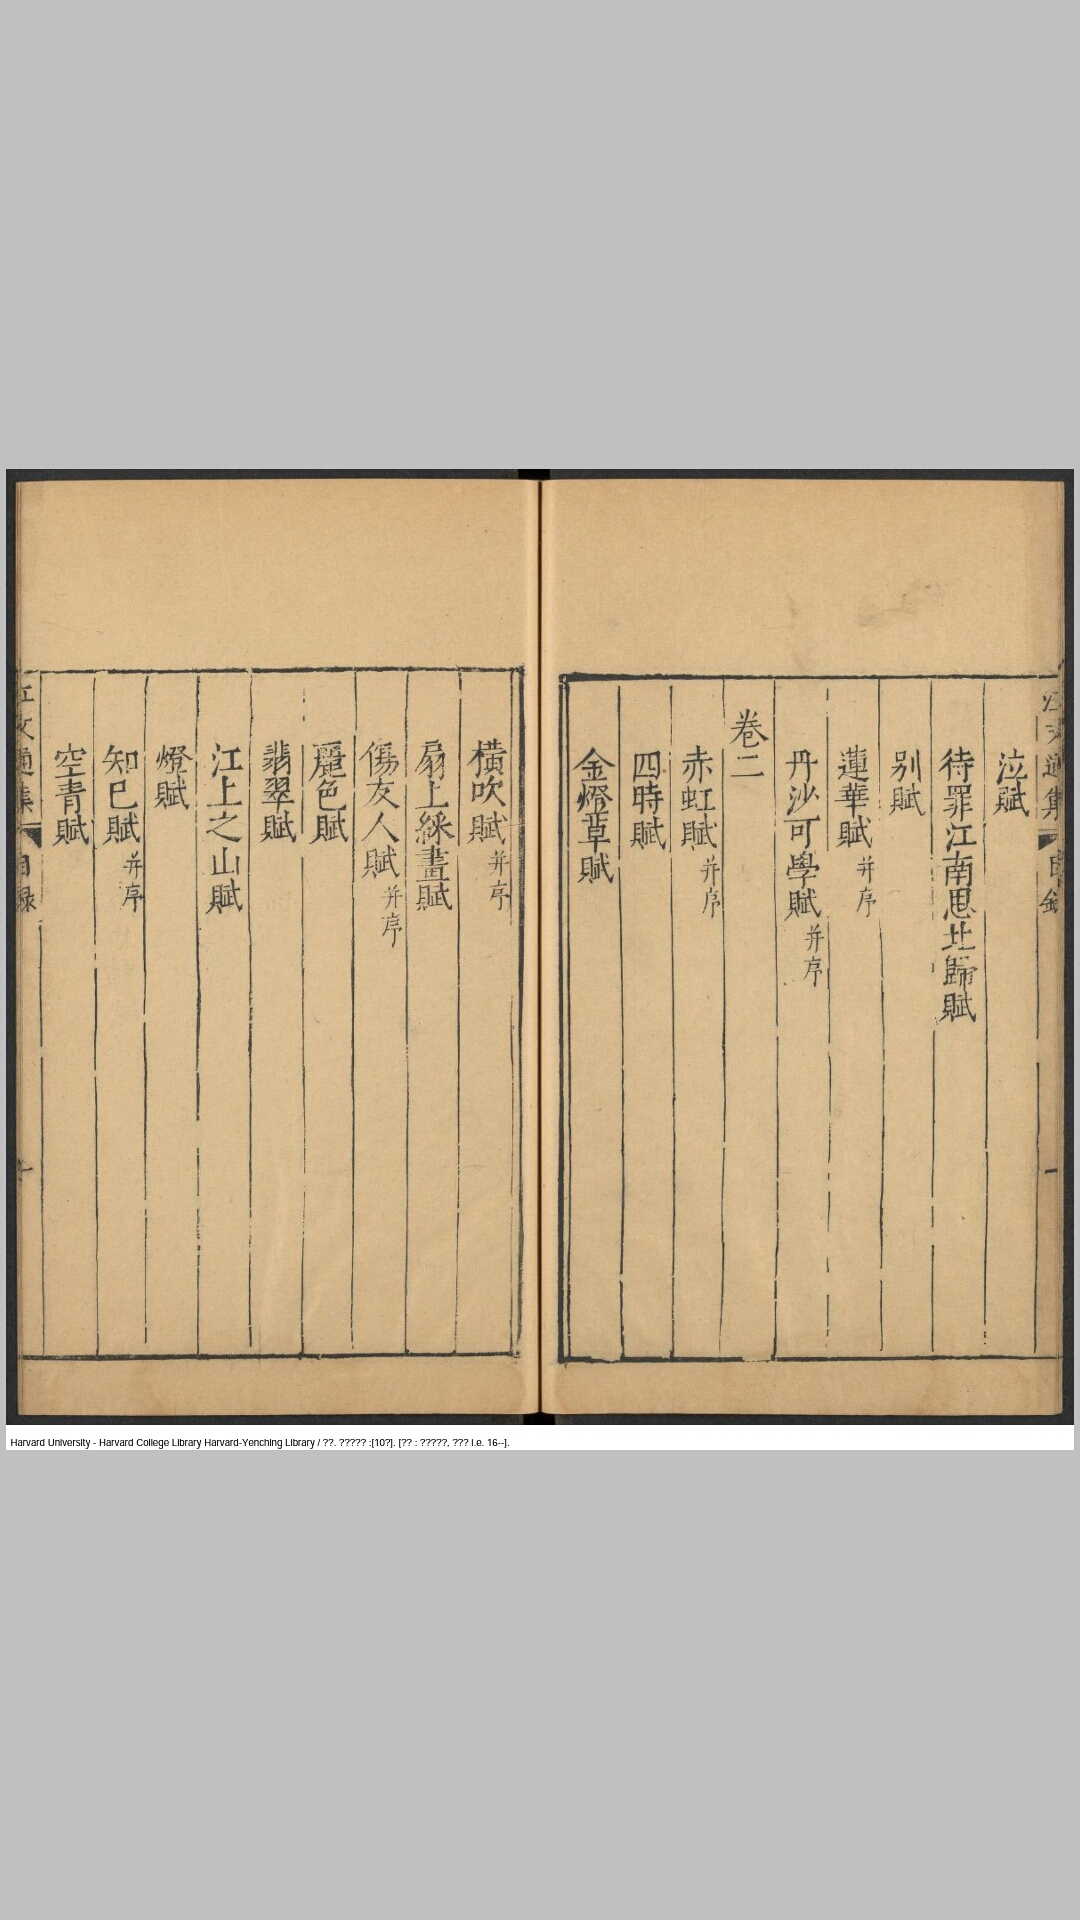 泣賦
待罪江南思北歸賦
别賦
蓮華賦并序
丹沙可學賦并序
卷二
赤虹賦并序
四時賦
金燈草賦
橫吹賦并序
扇上綵畫賦
傷友人賦并序
麗色賦
翡翠賦
江上之山賦
燈賦
知己賦并序
空青賦
江文通集
目録
Harvard University - Harvard College Library Harvard-Yenching Library / ??. ????? :[10?]. [?? : ?????, ??? i.e. 16--].